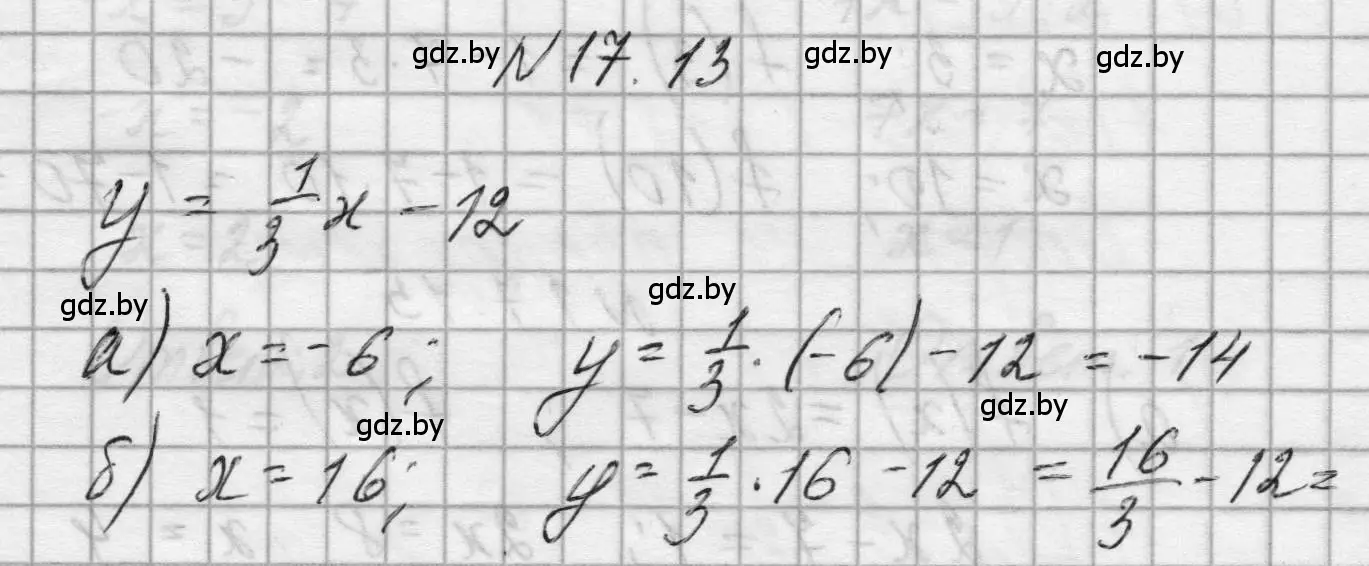 gdz.by N 17.13 gdz.by gdz.by
y = 1/3 x - 12
gdz.by gdz.by
а) x = -6; y = 1/3 · (-6) - 12 = -14
gdz.by gdz.by
б) x = 16; y = 1/3 · 16 - 12 = 16/3 - 12 =